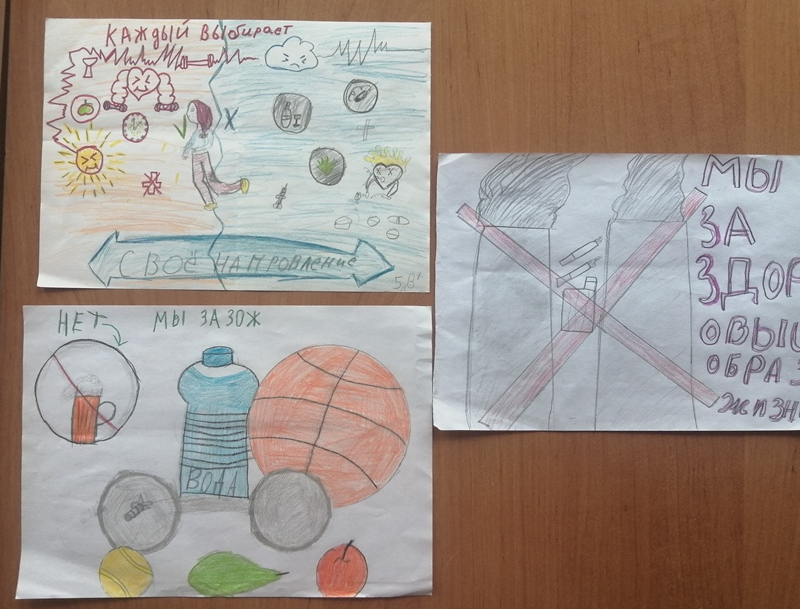 КАЖДЫЙ ВЫБИРАЕТ
СВОЁ НАПРОВЛЕНИЕ
5„В"
НЕТ
МЫ ЗА ЗОЖ
ВОДА
МЫ
ЗА
ЗДОР
ОВЫЙ
ОБРАЗ
ЖИЗН